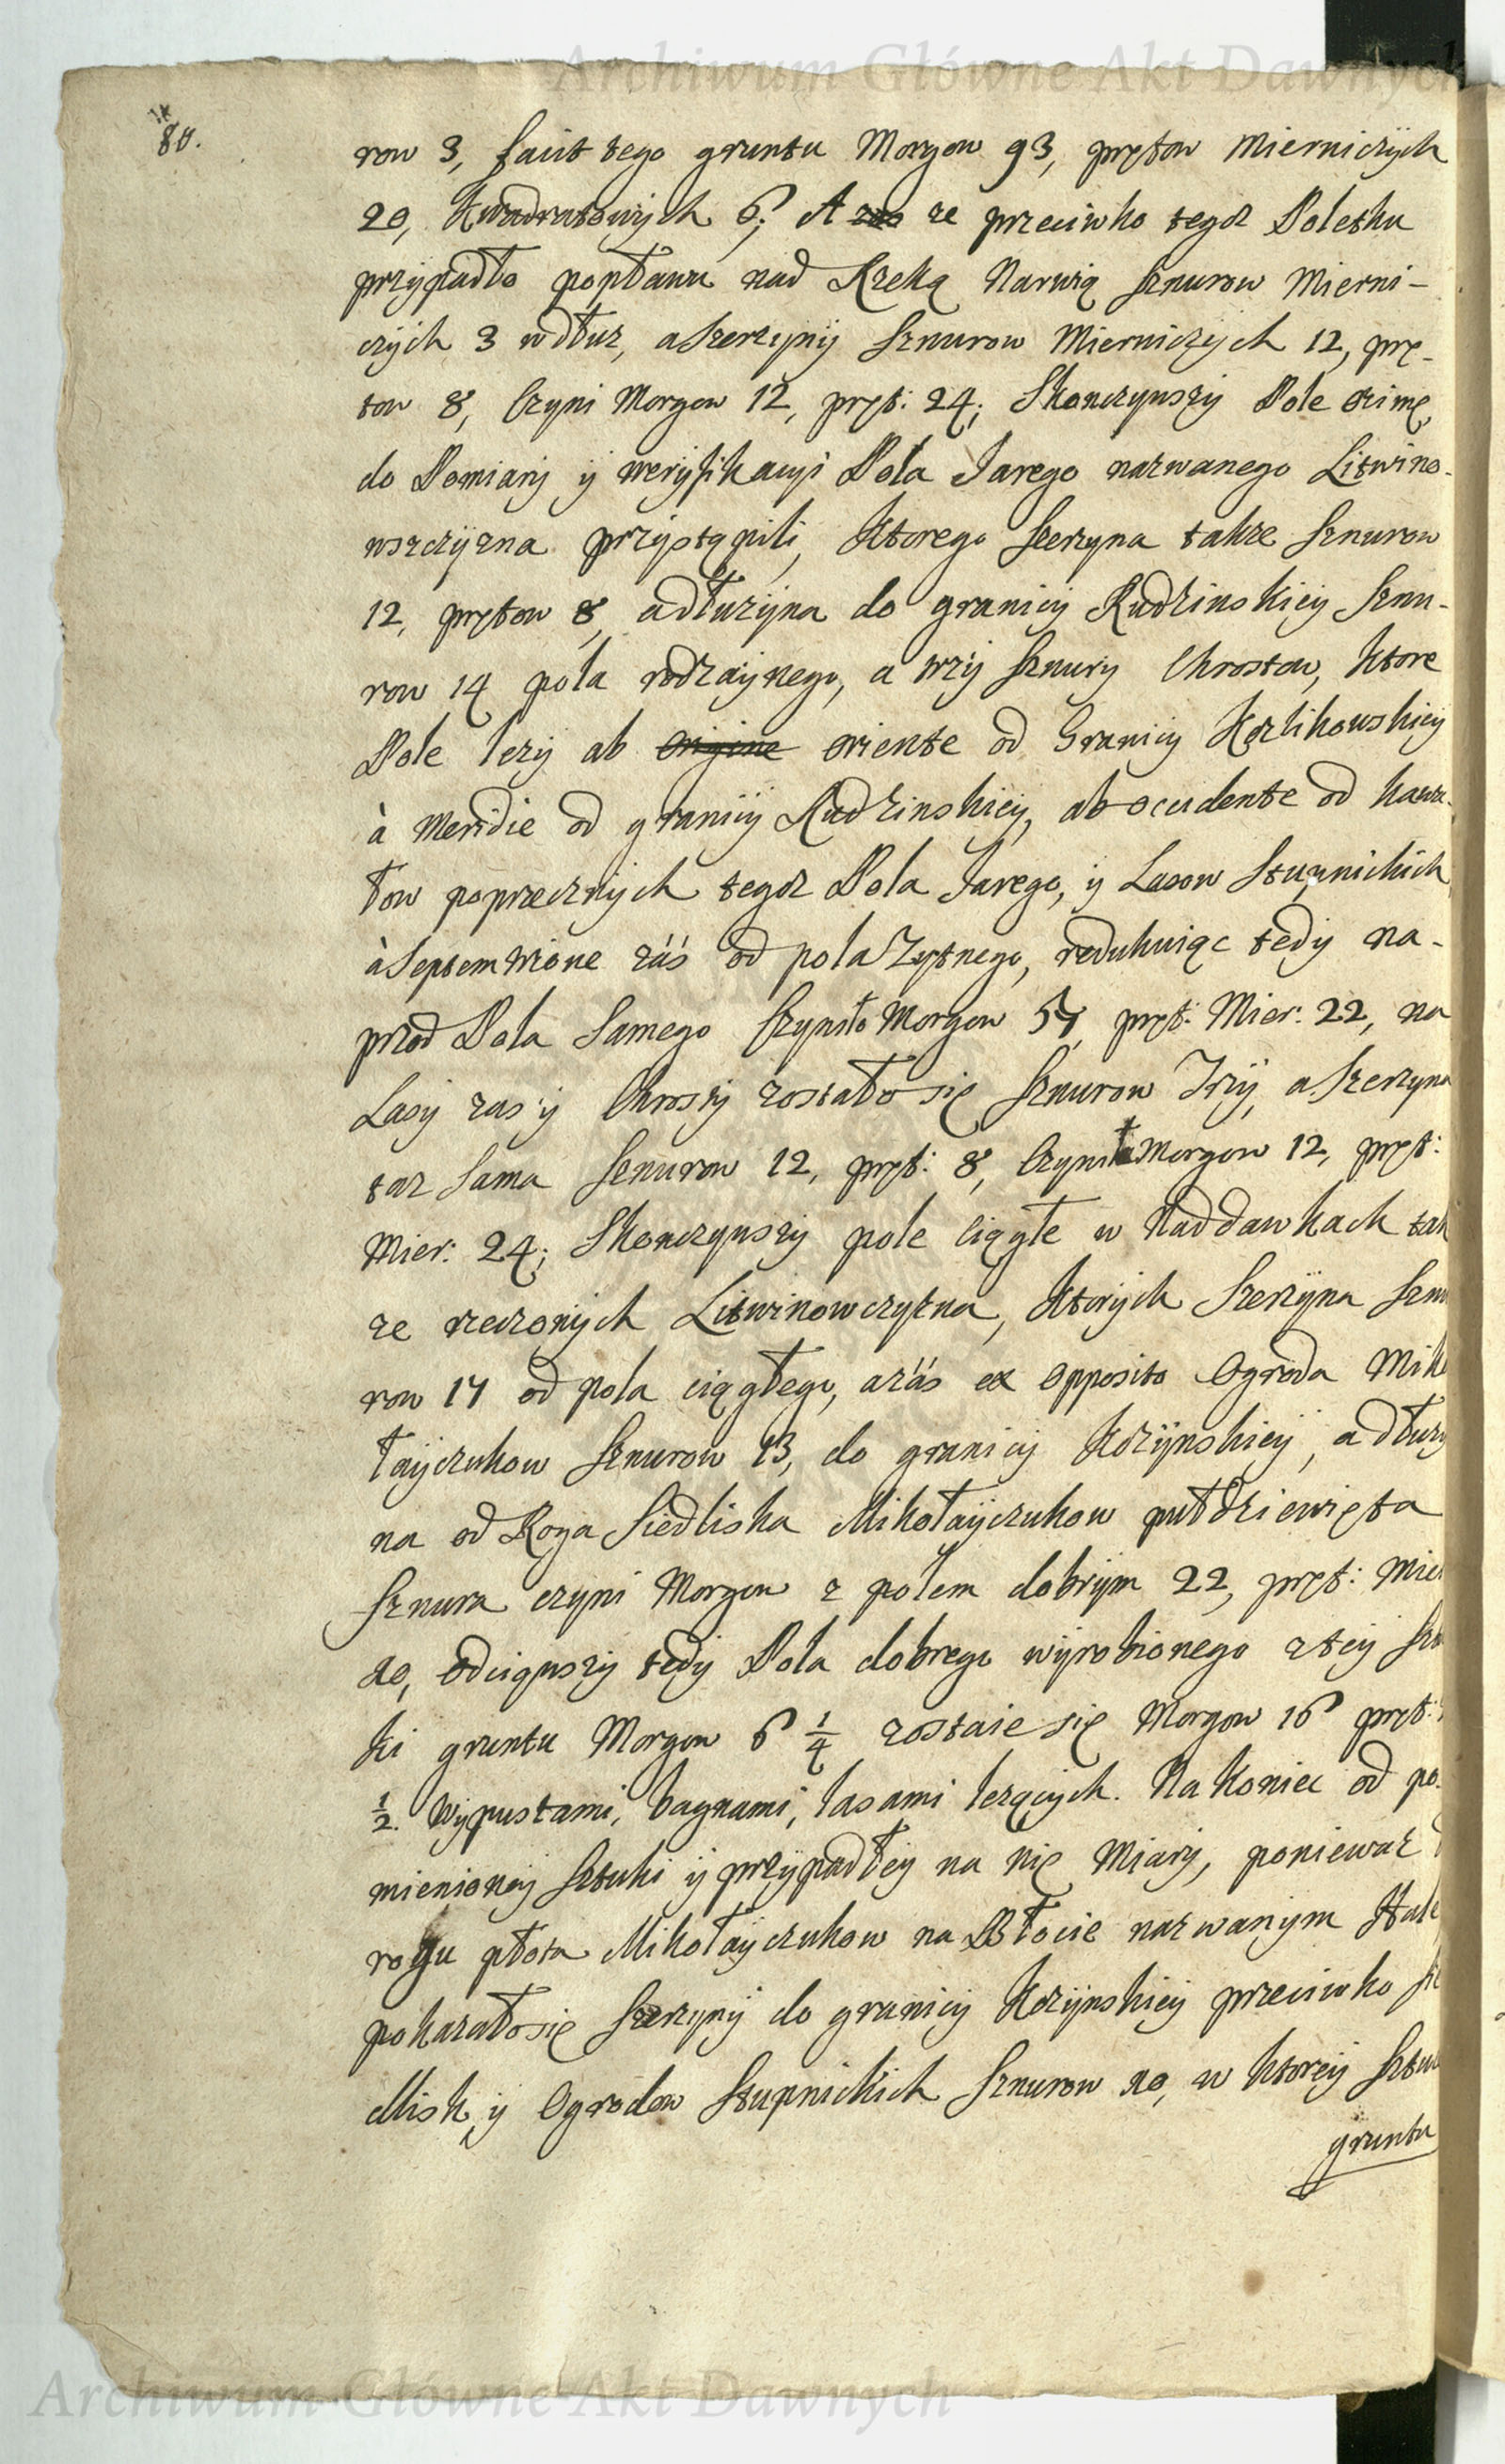 Archiwum Główne Akt Dawnych
80.
row 3, facit tego gruntu Morgow 93, prętow Mierniczÿch
20, Kwadratowÿch 6; A że przeciwko tegoż Poletku
przÿpadło popławu nad Rzeką Narwią sznurow Mierni-
czÿch 3 wdłuż, a szerzynÿ sznurow Mierniczÿch 12, prę-
tow 8, Czyni Morgow 12, pręt: 24; Skonczywszÿ Pole ozime,
do Pomiarÿ ÿ werÿfikacyi Pola Jarego nazwanego Litwino-
wszczÿzna przÿstąpili, Ktorego szerzyna takze sznurow
12, prętow 8, a dłużÿna do granicÿ Rudzinskieÿ sznu-
row 14 pola rodzaÿnego, a trzÿ sznurÿ Chrostow, Ktore
Pole leżÿ ab origine oriente od Granicÿ Kozlikowskieÿ
à Meridie od granicÿ Rudzinskieÿ, ab occidente od kawa-
łow poprzecznÿch tegoż Pola Jarego, ÿ Lasow Stupnickich
à Septemtrione záś od pola Zytnego, redukuiąc tedÿ na-
przod Pola samego Czyniło Morgow 57, pręt: Mier: 22, na
Lasÿ zas ÿ Chrostÿ zostało się sznurow Trzÿ, a szerzyna
taz sama sznurow 12, pręt: 8, Czyniło Morgow 12, pręt:
Mier: 24; Skonczywszÿ pole Ciągłe w Naddawkach tak
że rzeczonÿch Litwinowczyzna, Ktorÿch szerzÿna sznu
row 17 od pola ciągłego, a záś ex opposito Ogroda Miko
łaÿczukow sznurow 13, do granicÿ Kozÿnskieÿ, a dłuży
na od Roga Siedliska Mikołaÿczukow puł dziewięta
sznura czyni Morgow z polem dobrÿm 22, pręt: Mier
20, odciąwszÿ tedÿ Pola dobrego wÿrobionego z teÿ sztu
ki gruntu Morgow 6 1/4 zostaie się Morgow 16 pręt:
1/2. Wÿpustami, bagnami, lasami leżącÿch. Nakoniec od po-
mienioneÿ sztuki ÿ przÿpadłeÿ na nię Miarÿ, ponieważ
rogu płota Mikołaÿczukow na Błocie nazwanÿm
pokazało się szerzynÿ do granicÿ Kozÿnskieÿ przeciwko sie
dlisk ÿ Ogrodow Stupnickich sznurow 20, w ktoreÿ sztuc
gruntu
Archiwum Główne Akt Dawnych